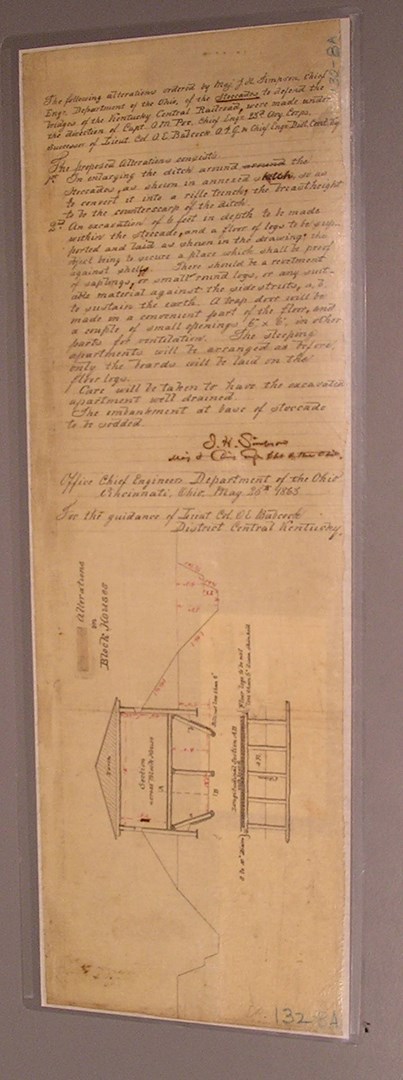 132-8A
The following alterations ordered by Maj. J. H. Simpson Chief
Engr. Department of the Ohio, of the Stockades to defend the
bridges of the Kentucky Central Railroad, were made under
the direction of Capt. O. M. Poe, Chief Engr. 23d Army Corps,
successor of Lieut. Col. O. E. Babcock A.I.G. & Chief Engr. Dist. Centl. Ky.
The proposed Alterations consist:
1st In enlarging the ditch around the
stockades, as shown in annexed sketch, so as
to convert it into a rifle trench, the breastheight
to be the counterscarp of the ditch.
2d An excavation of 6 feet in depth to be made
within the stockade, and a floor of logs to be sup-
ported and laid as shown in the drawing: the
object being to secure a place which shall be proof
against shells. There should be a revetment
of saplings, or small round logs, or any suit-
able material against the side struts, a, b,
to sustain the earth. A trap door will be
made in a convenient part of the floor, and
a couple of small openings 6" x 6", in other
parts for ventilation. The sleeping
apartments will be arranged as before,
only the boards will be laid on the
floor logs.
Care will be taken to have the excavated
apartment well drained.
The embankment at base of stockade
to be sodded.
J. H. Simpson
Maj & Chief Engr. of the Ohio.
Office Chief Engineers Department of the Ohio
Cincinnati, Ohio, May 26th 1863
For the guidance of Lieut Col. O E Babcock
District Central Kentucky.
Alterations
in
Block Houses
Section
across Block House
Longitudinal Section A.B.
132-8A